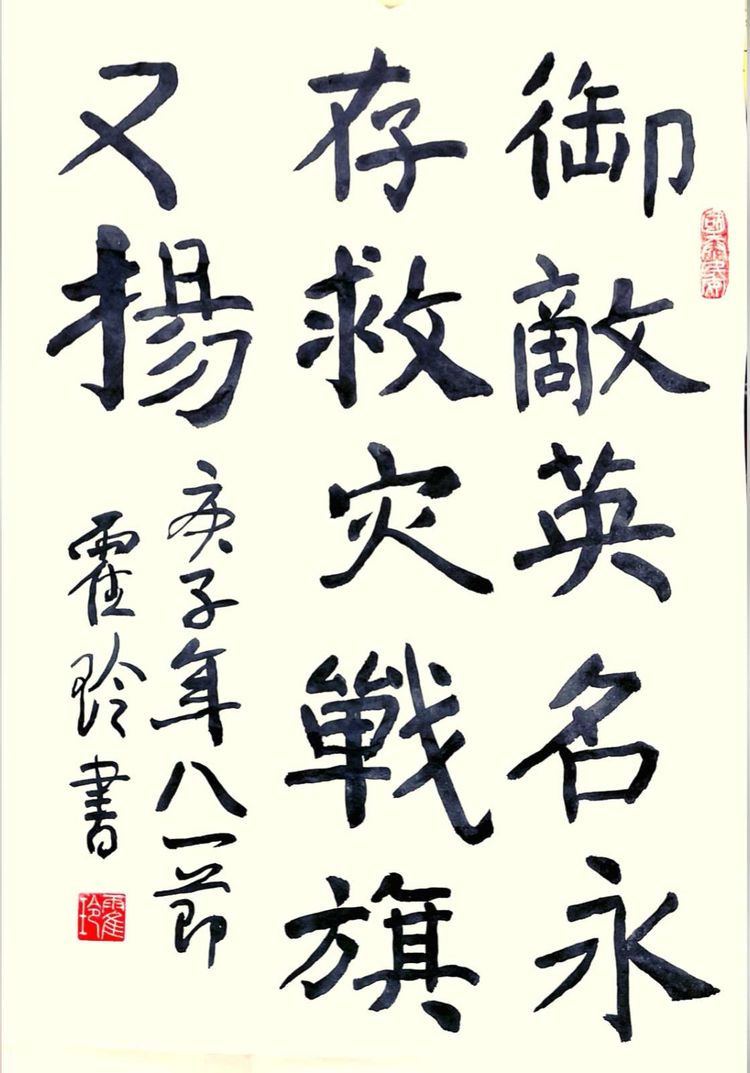 御敵英名永
存救灾戰旗
又揚
庚子年八一節
霍玲書
霍玲